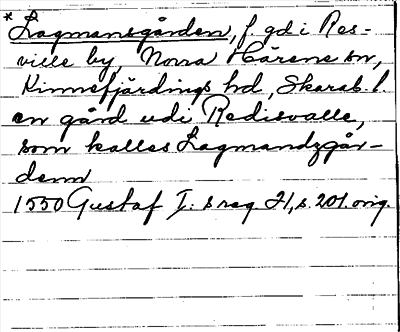 * Lagmansgården, f. gd i Res-
ville by, Norra Härene sn,
Kinnefjärdings hd, Skarab. l.
en gård udi Redisvalle,
som kalles Lagmandzgår-
denn
1550 Gustaf I:s reg. 21, s. 201. orig.